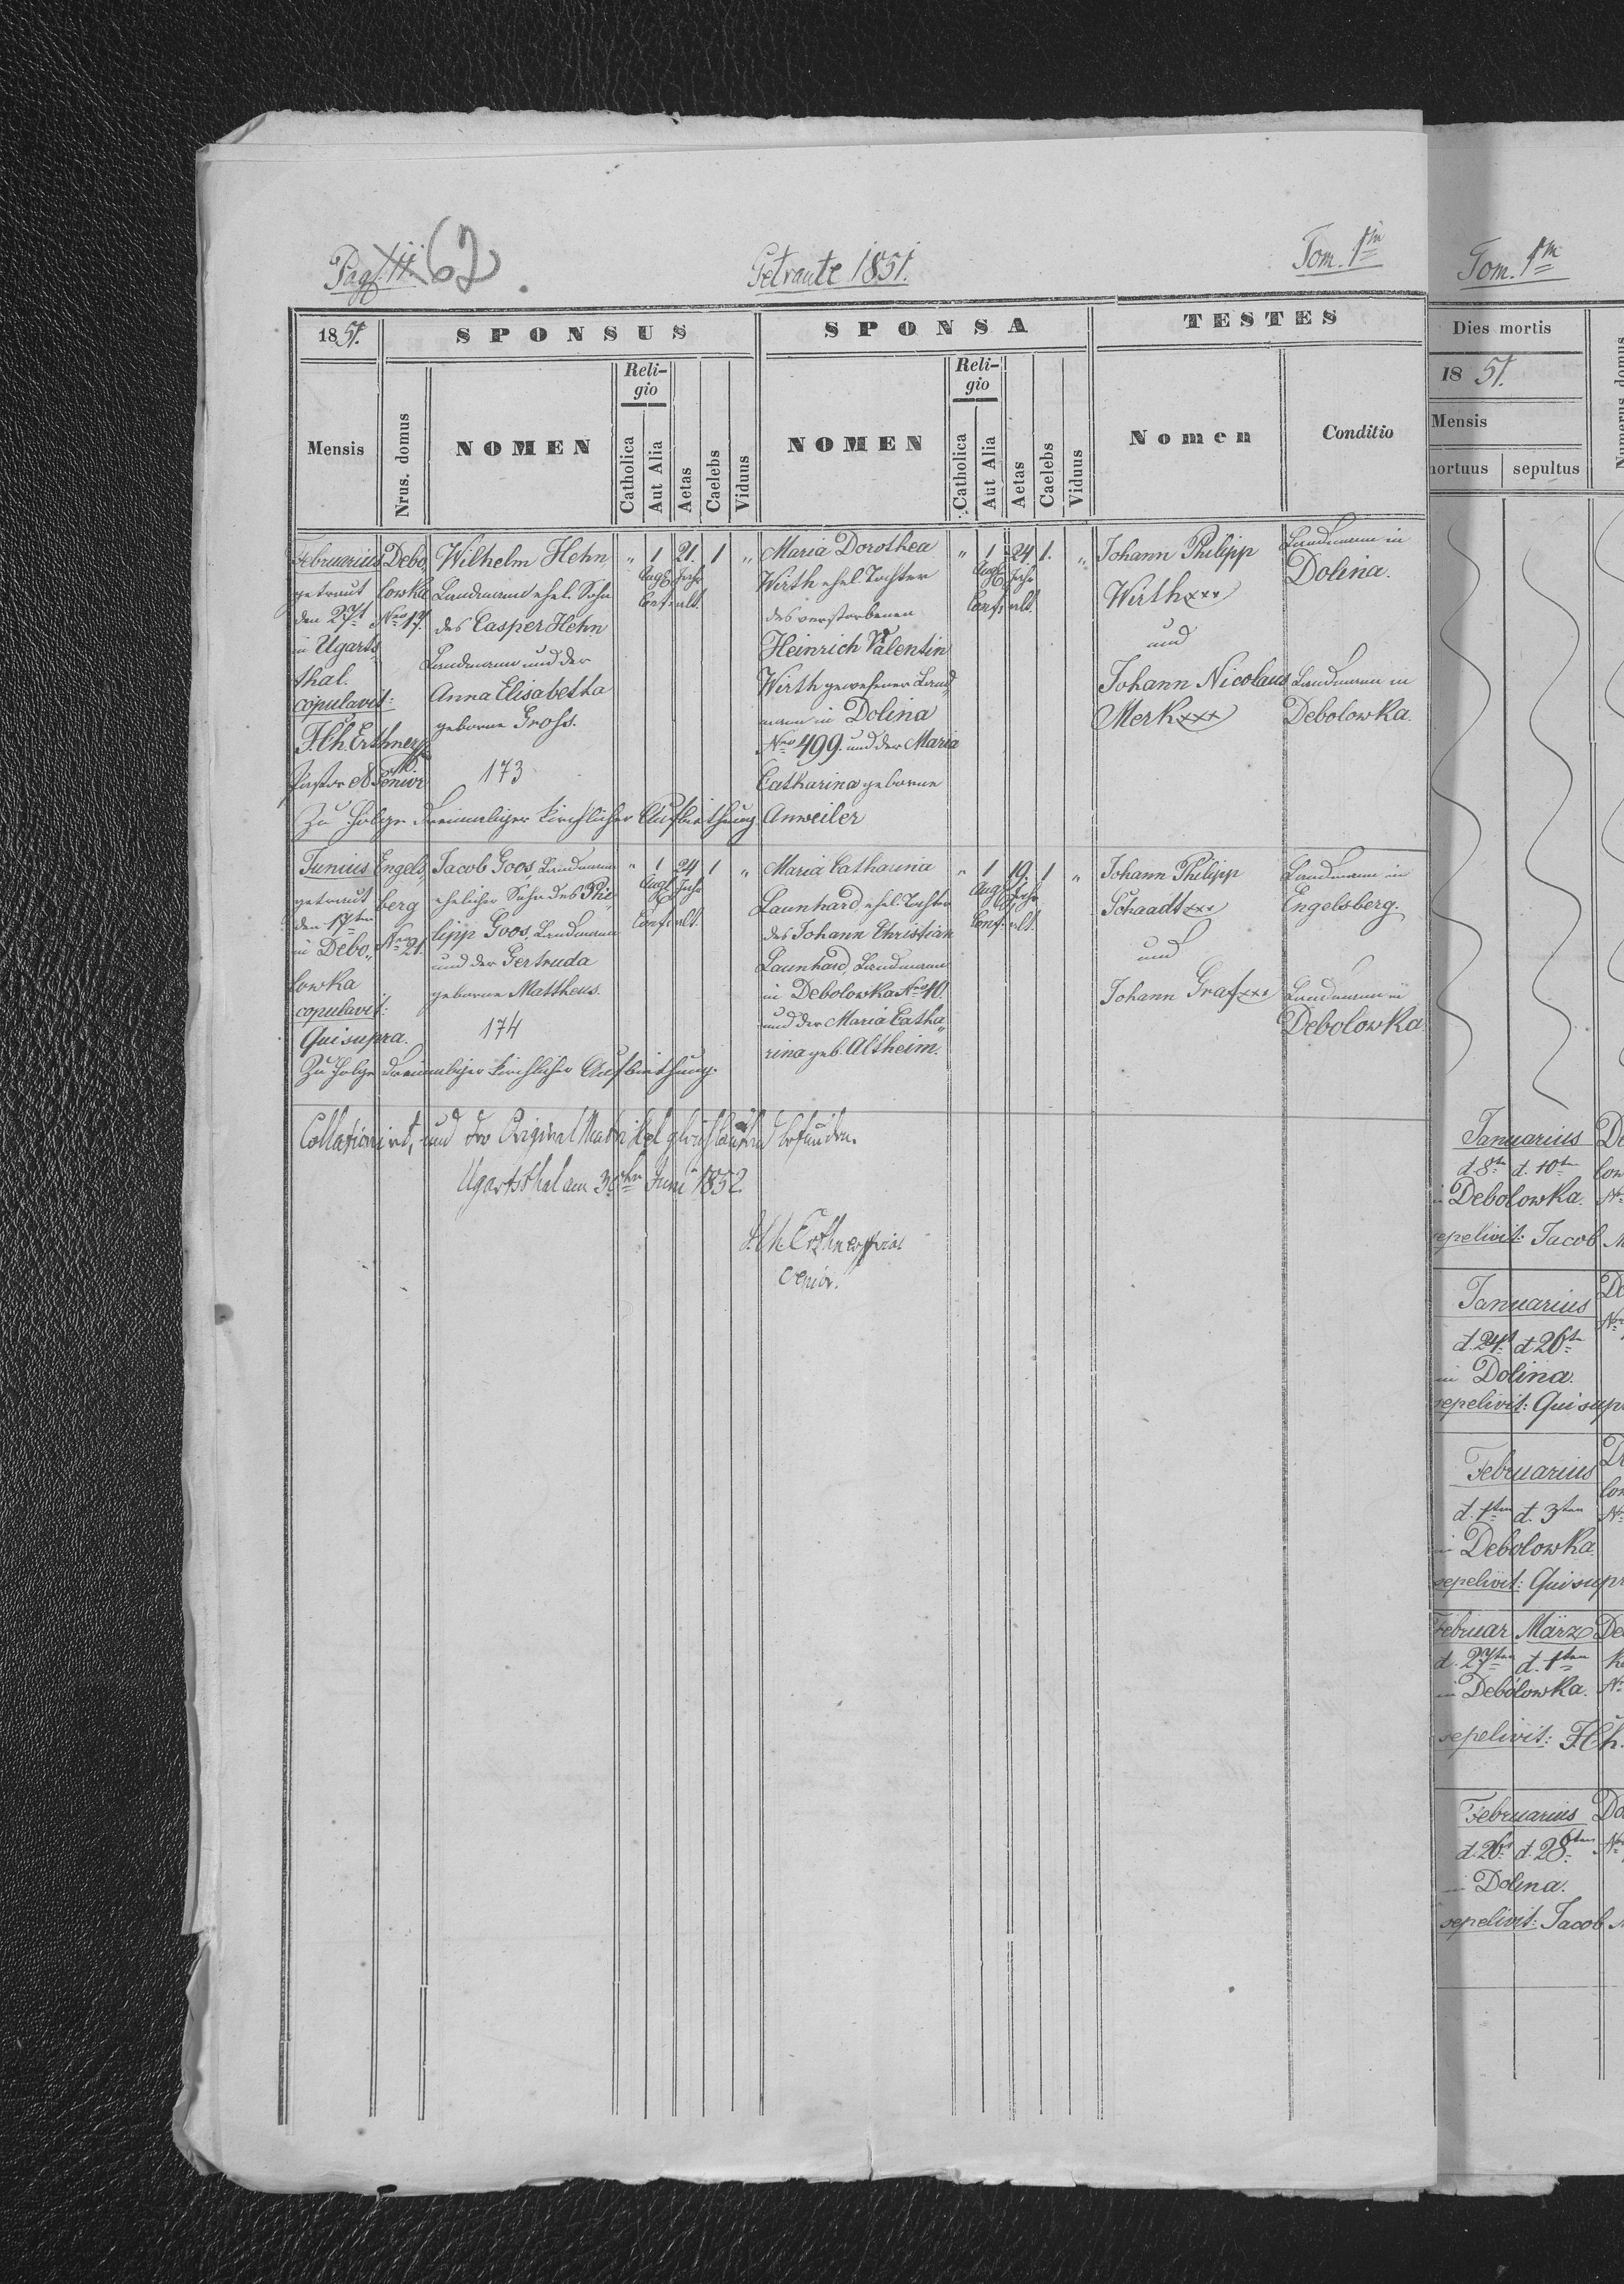 Pag. 11. 62.
Getraute 1851.
Tom. 1m
1851.
SPONSUS
SPONSA
TESTES
Mensis
Nrus. domus
NOMEN
Religio
Catholica
Aut Alia
Aetas
Caelebs
Viduus
NOMEN
Religio
Catholica
Aut Alia
Aetas
Caelebs
Viduus
Nomen
Conditio
Februarius
getraut
den 27t
in Ugarts
thal.
copulavit:
F. Ch. Erthner
Pastor et Senior
Debo,
lowka
Nro 17.
Wilhelm Hehn,
Landmann ehel. Sohn
des Casper Hehn
Landmann und der
Anna Elisabetha
geborne Gross.
173
" 1 21. 1 "
Augb. Jahr
Conf. alt.
Maria Dorothea
Wirth ehel. Tochter
des verstorbenen
Heinrich Valentin
Wirth gewesener Land,
mann in Dolina
Nro 499. und der Maria
Catharina geborne
Anweiler
" 1 24 1. "
Augb. Jahr
Conf. alt.
Johann Philipp
Wirth xxx
und
Johann Nicolaus
Merk xxx
Landmann in
Dolina.
Landmann in
Debolowka.
Zu Folge dreimaliger kirchlicher Aufbiethung
Junius
getraut
den 17ten
in Debo„
lowka
copulavit:
Qui supra.
Engels„
berg
Nro 21.
Jacob Goos, Landmann
ehelicher Sohn des Phi„
lipp Goos, Landmann
und der Gertruda
geborne Mattheus.
174
" 1 24 1 "
Augb. Jahr
Conf. alt.
Maria Catharina
Launhard ehel. Tochter
des Johann Christian
Launhard, Landmann
in Debolowka Nro 10.
und der Maria Catha„
rina geb. Altheim.
" 1 19. 1 "
Augb. Jahr
Conf. alt.
Johann Philipp
Schaadt xxx
und
Johann Graf xxx
Landmann in
Engelsberg.
Landmann in
Debolowka
Zu Folge dreimaliger kirchlicher Aufbiethung.
Collationirt, und der Original Matrikel gleichlautend befunden.
Ugartsthal am 30ten Juni 1852
F. Ch. Erthner
Senior.
Tom. 1m
Dies mortis
1851.
Mensis
mortuus
sepultus
Numerus domus
Januarius
d. 8t d. 10ten
in Debolowka.
sepelivit: Jacob
Januarius
d. 24t d. 26ten
in Dolina.
sepelivit: Qui supr
Februarius
d. 1ten d. 3ten
in Debolowka.
sepelivit: Qui supr
Februar März
d. 27ten d. 1ten
in Debolowka.
sepelivit: F. Ch.
Februarius
d. 26t d. 28ten
in Dolina.
sepelivit: Jacob